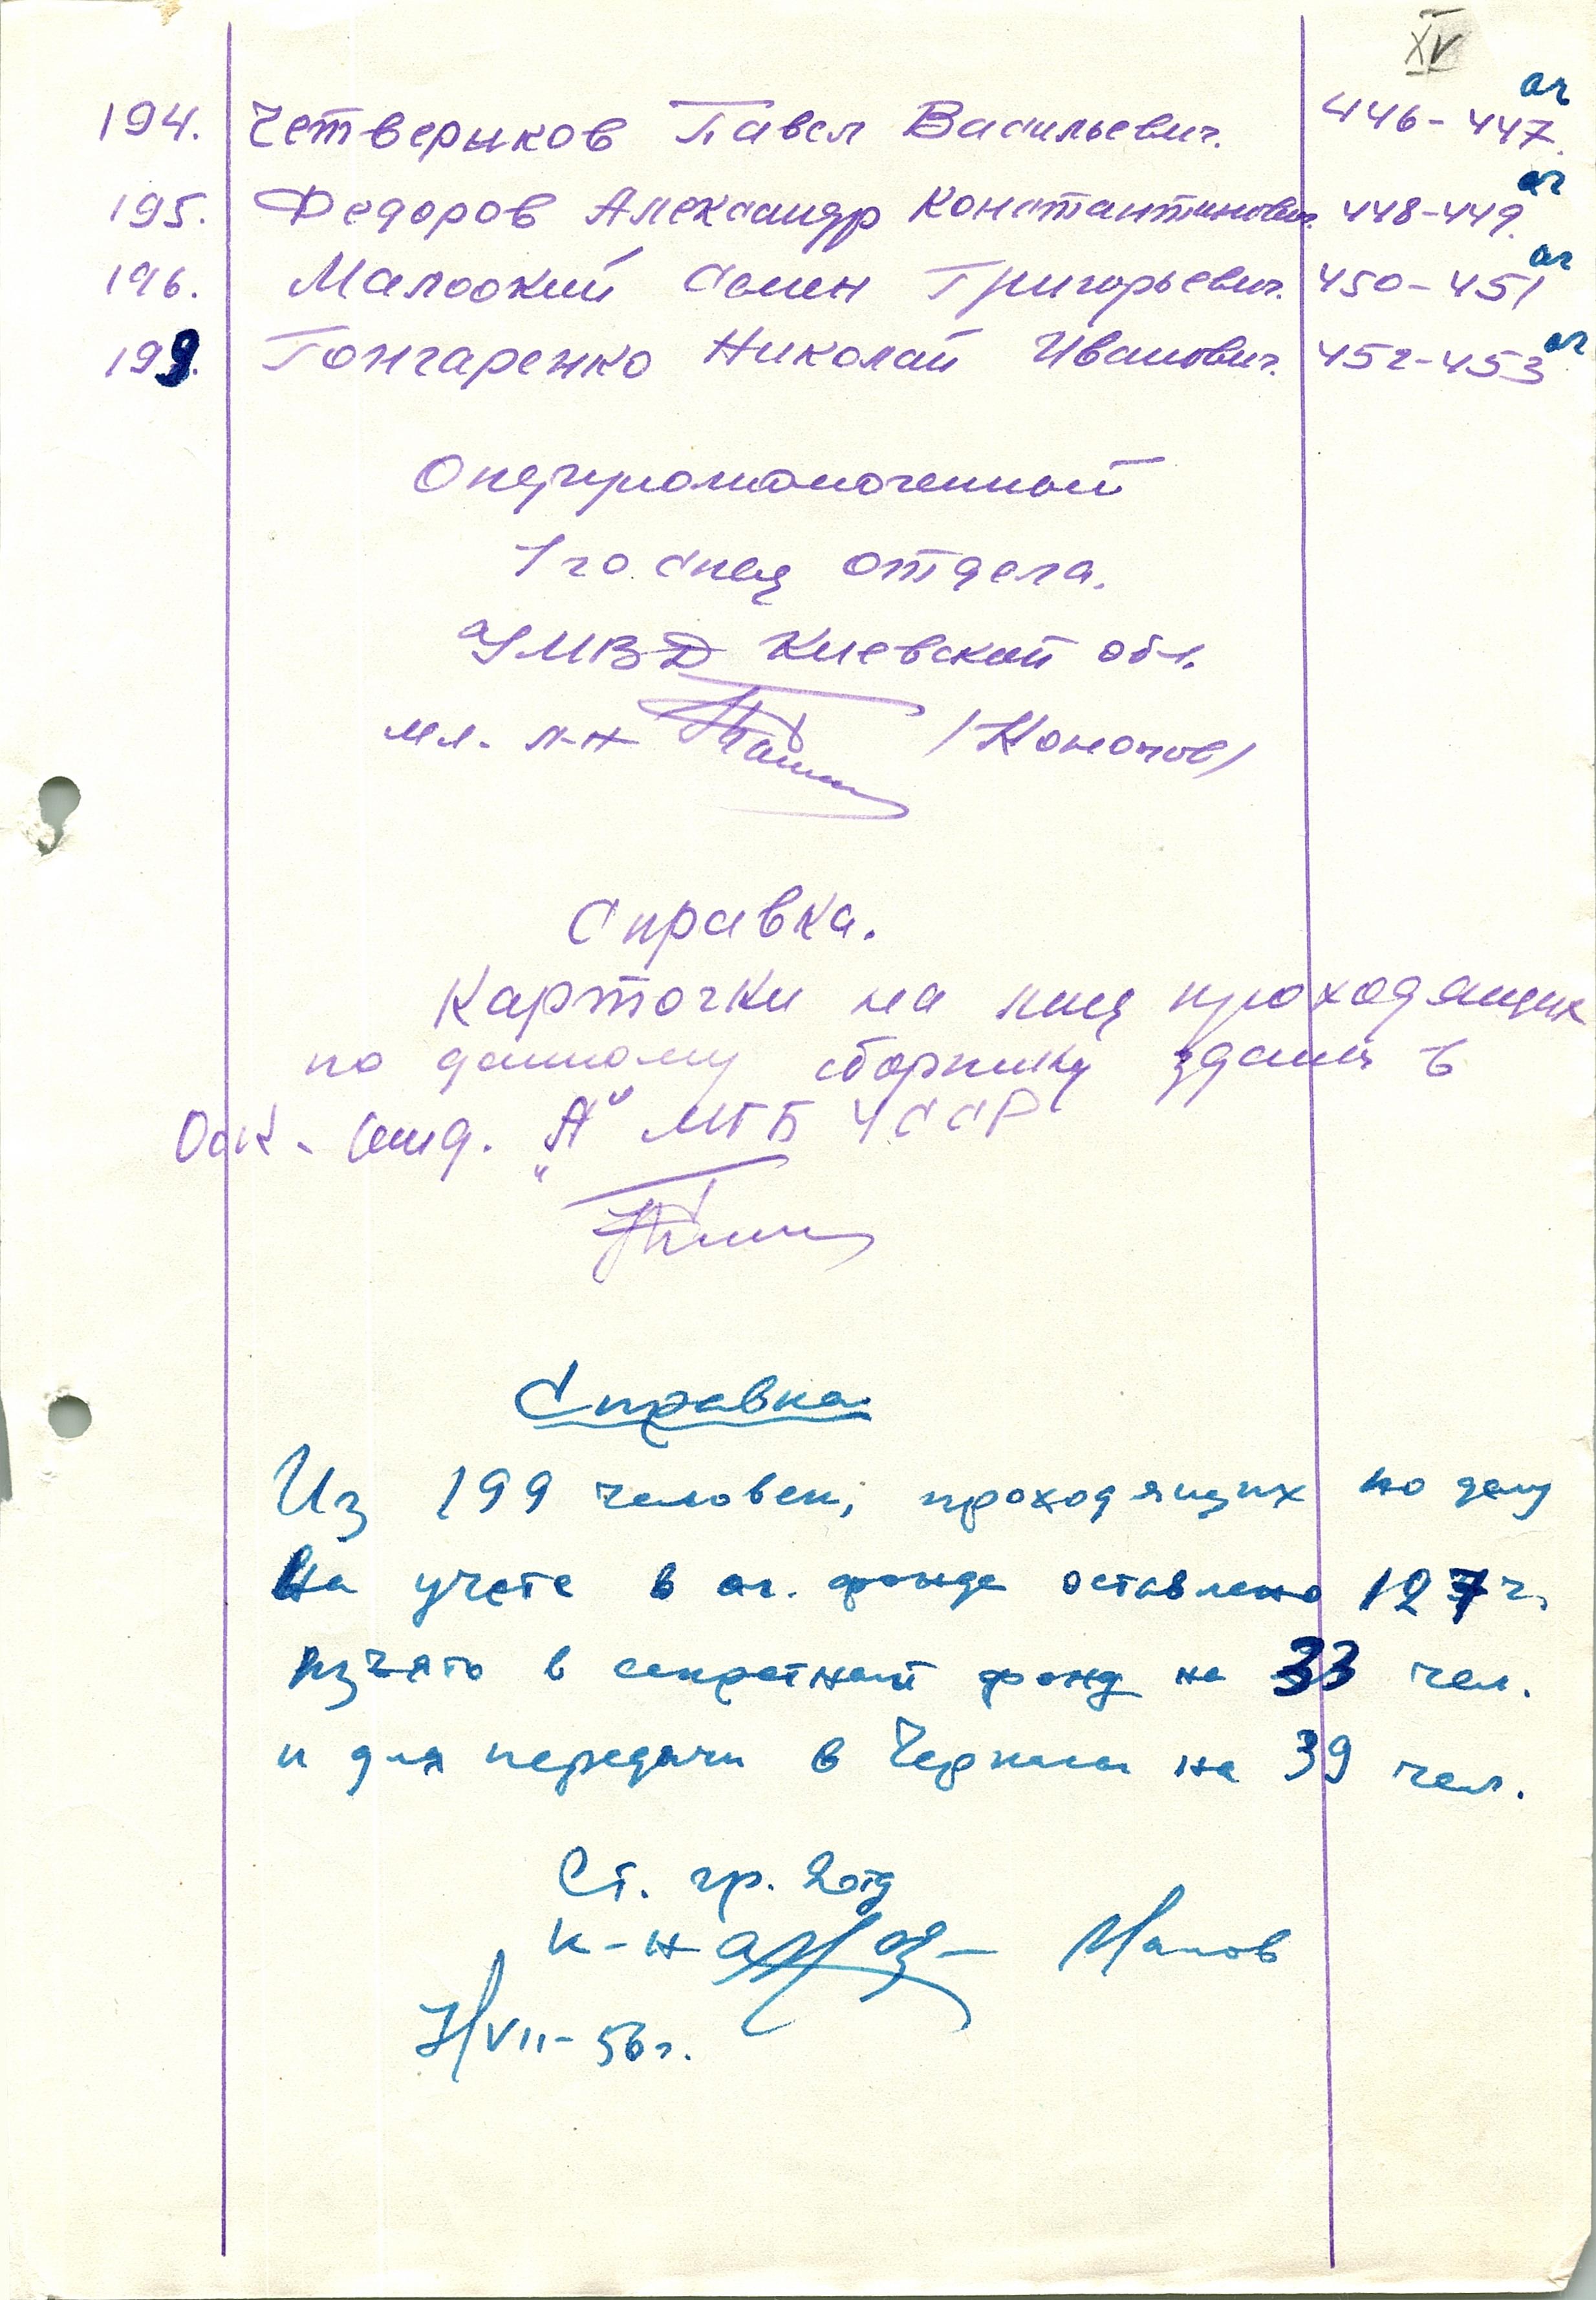 XV
194. Четвериков Павел Васильевич. 446-447. ог
195. Федоров Александр Константинович. 448-449. ог
196. Малоокий Семен Григорьевич. 450-451 ог
199. Гончаренко Николай Иванович. 452-453 ог
Оперуполномоченный
1го спец отдела.
УМВД Киевской обл.
мл. л-н /Кононов/
Справка.
Карточки на лиц проходящих
по данному сборнику сданы в
отд. "А" МГБ УССР
Справка
Из 199 человек, проходящих по делу
На учете в ог. фонде оставлено 127 ч.
изъято в секретный фонд на 33 чел.
и для передачи в Черкассы на 39 чел.
Ст. гр. 2отд
к-н
VII-56г.